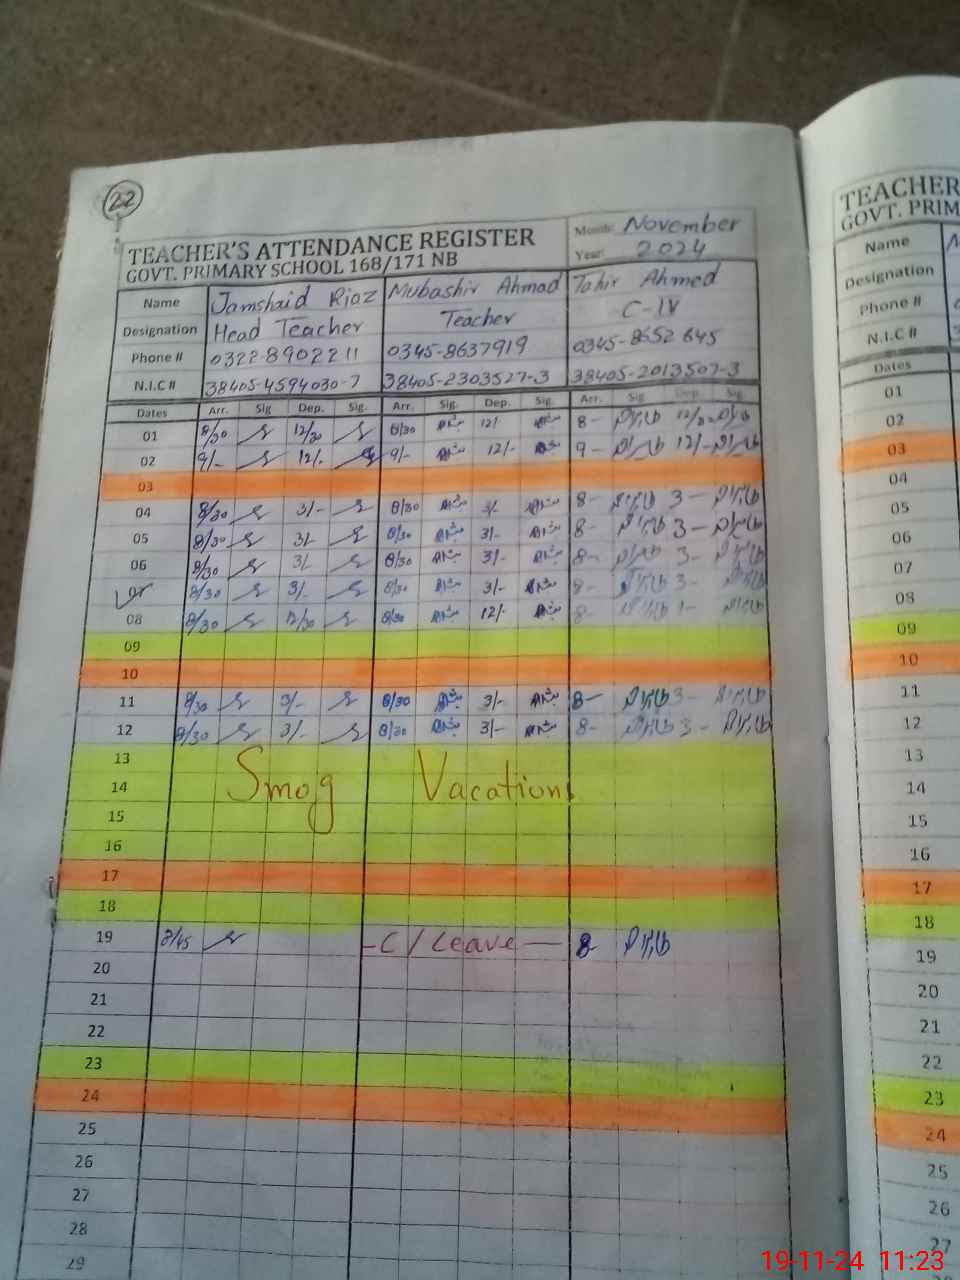 22
TEACHER'S ATTENDANCE REGISTER Month: November
GOVT. PRIMARY SCHOOL 168/171 NB Year: 2024
Name Jamshaid Riaz Mubashir Ahmad Tahir Ahmed
Designation Head Teacher Teacher C-IV
Phone # 0322-8902211 0345-8637919 0345-8652645
N.I.C # 38405-4594030-7 38405-2303527-3 38405-2013507-3
Dates Arr. Sig Dep. Sig. Arr. Sig. Dep. Sig. Arr. Sig Dep. Sig.
01 8/30 12/30 8/30 12/- 8- 12/30
02 9/- 12/- 9/- 12/- 9- 12/-
03
04 8/30 3/- 8/30 3/- 8- 3-
05 8/30 3/- 8/30 3/- 8- 3-
06 8/30 3/- 8/30 3/- 8- 3-
07 8/30 3/- 8/30 3/- 8- 3-
08 8/30 12/30 8/30 12/- 8- 1-
09
10
11 8/30 3/- 8/30 3/- 8- 3-
12 8/30 3/- 8/30 3/- 8- 3-
13
14 Smog Vacations
15
16
17
18
19 8/45 -C/Leave- 8-
20
21
22
23
24
25
26
27
28
29
TEACHER
GOVT. PRIM
Name
Designation
Phone #
N.I.C #
Dates
01
02
03
04
05
06
07
08
09
10
11
12
13
14
15
16
17
18
19
20
21
22
23
24
25
26
27
19-11-24 11:23